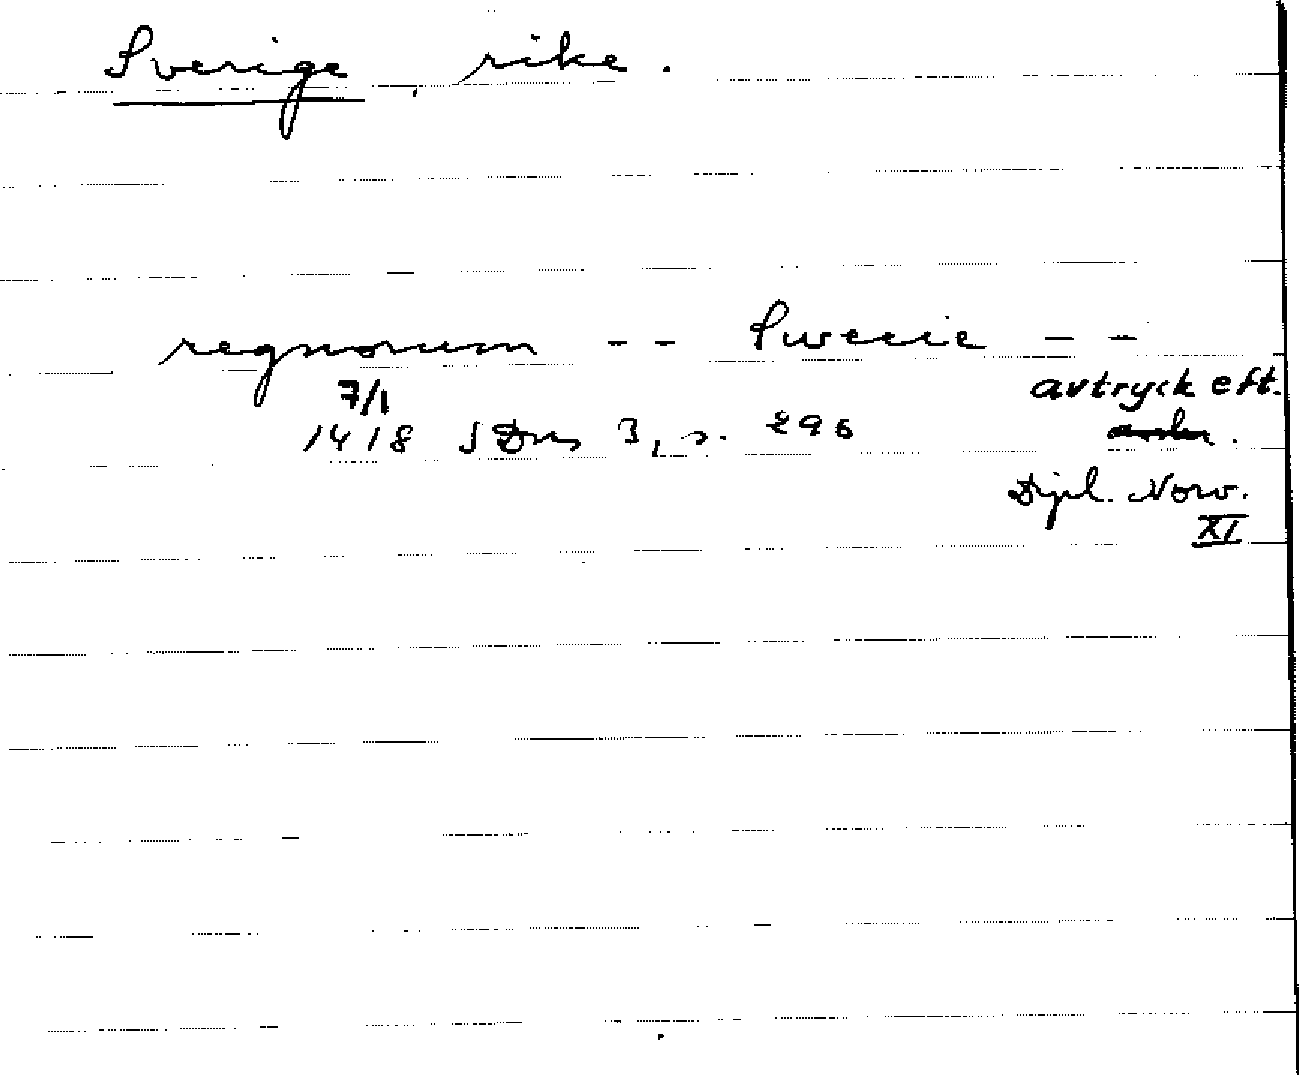 Sverige, rike.
regnorum -- Swecie --
7/1 avtryck eft.
1418 SDns 3, s. 296
Dipl. Norv.
XI